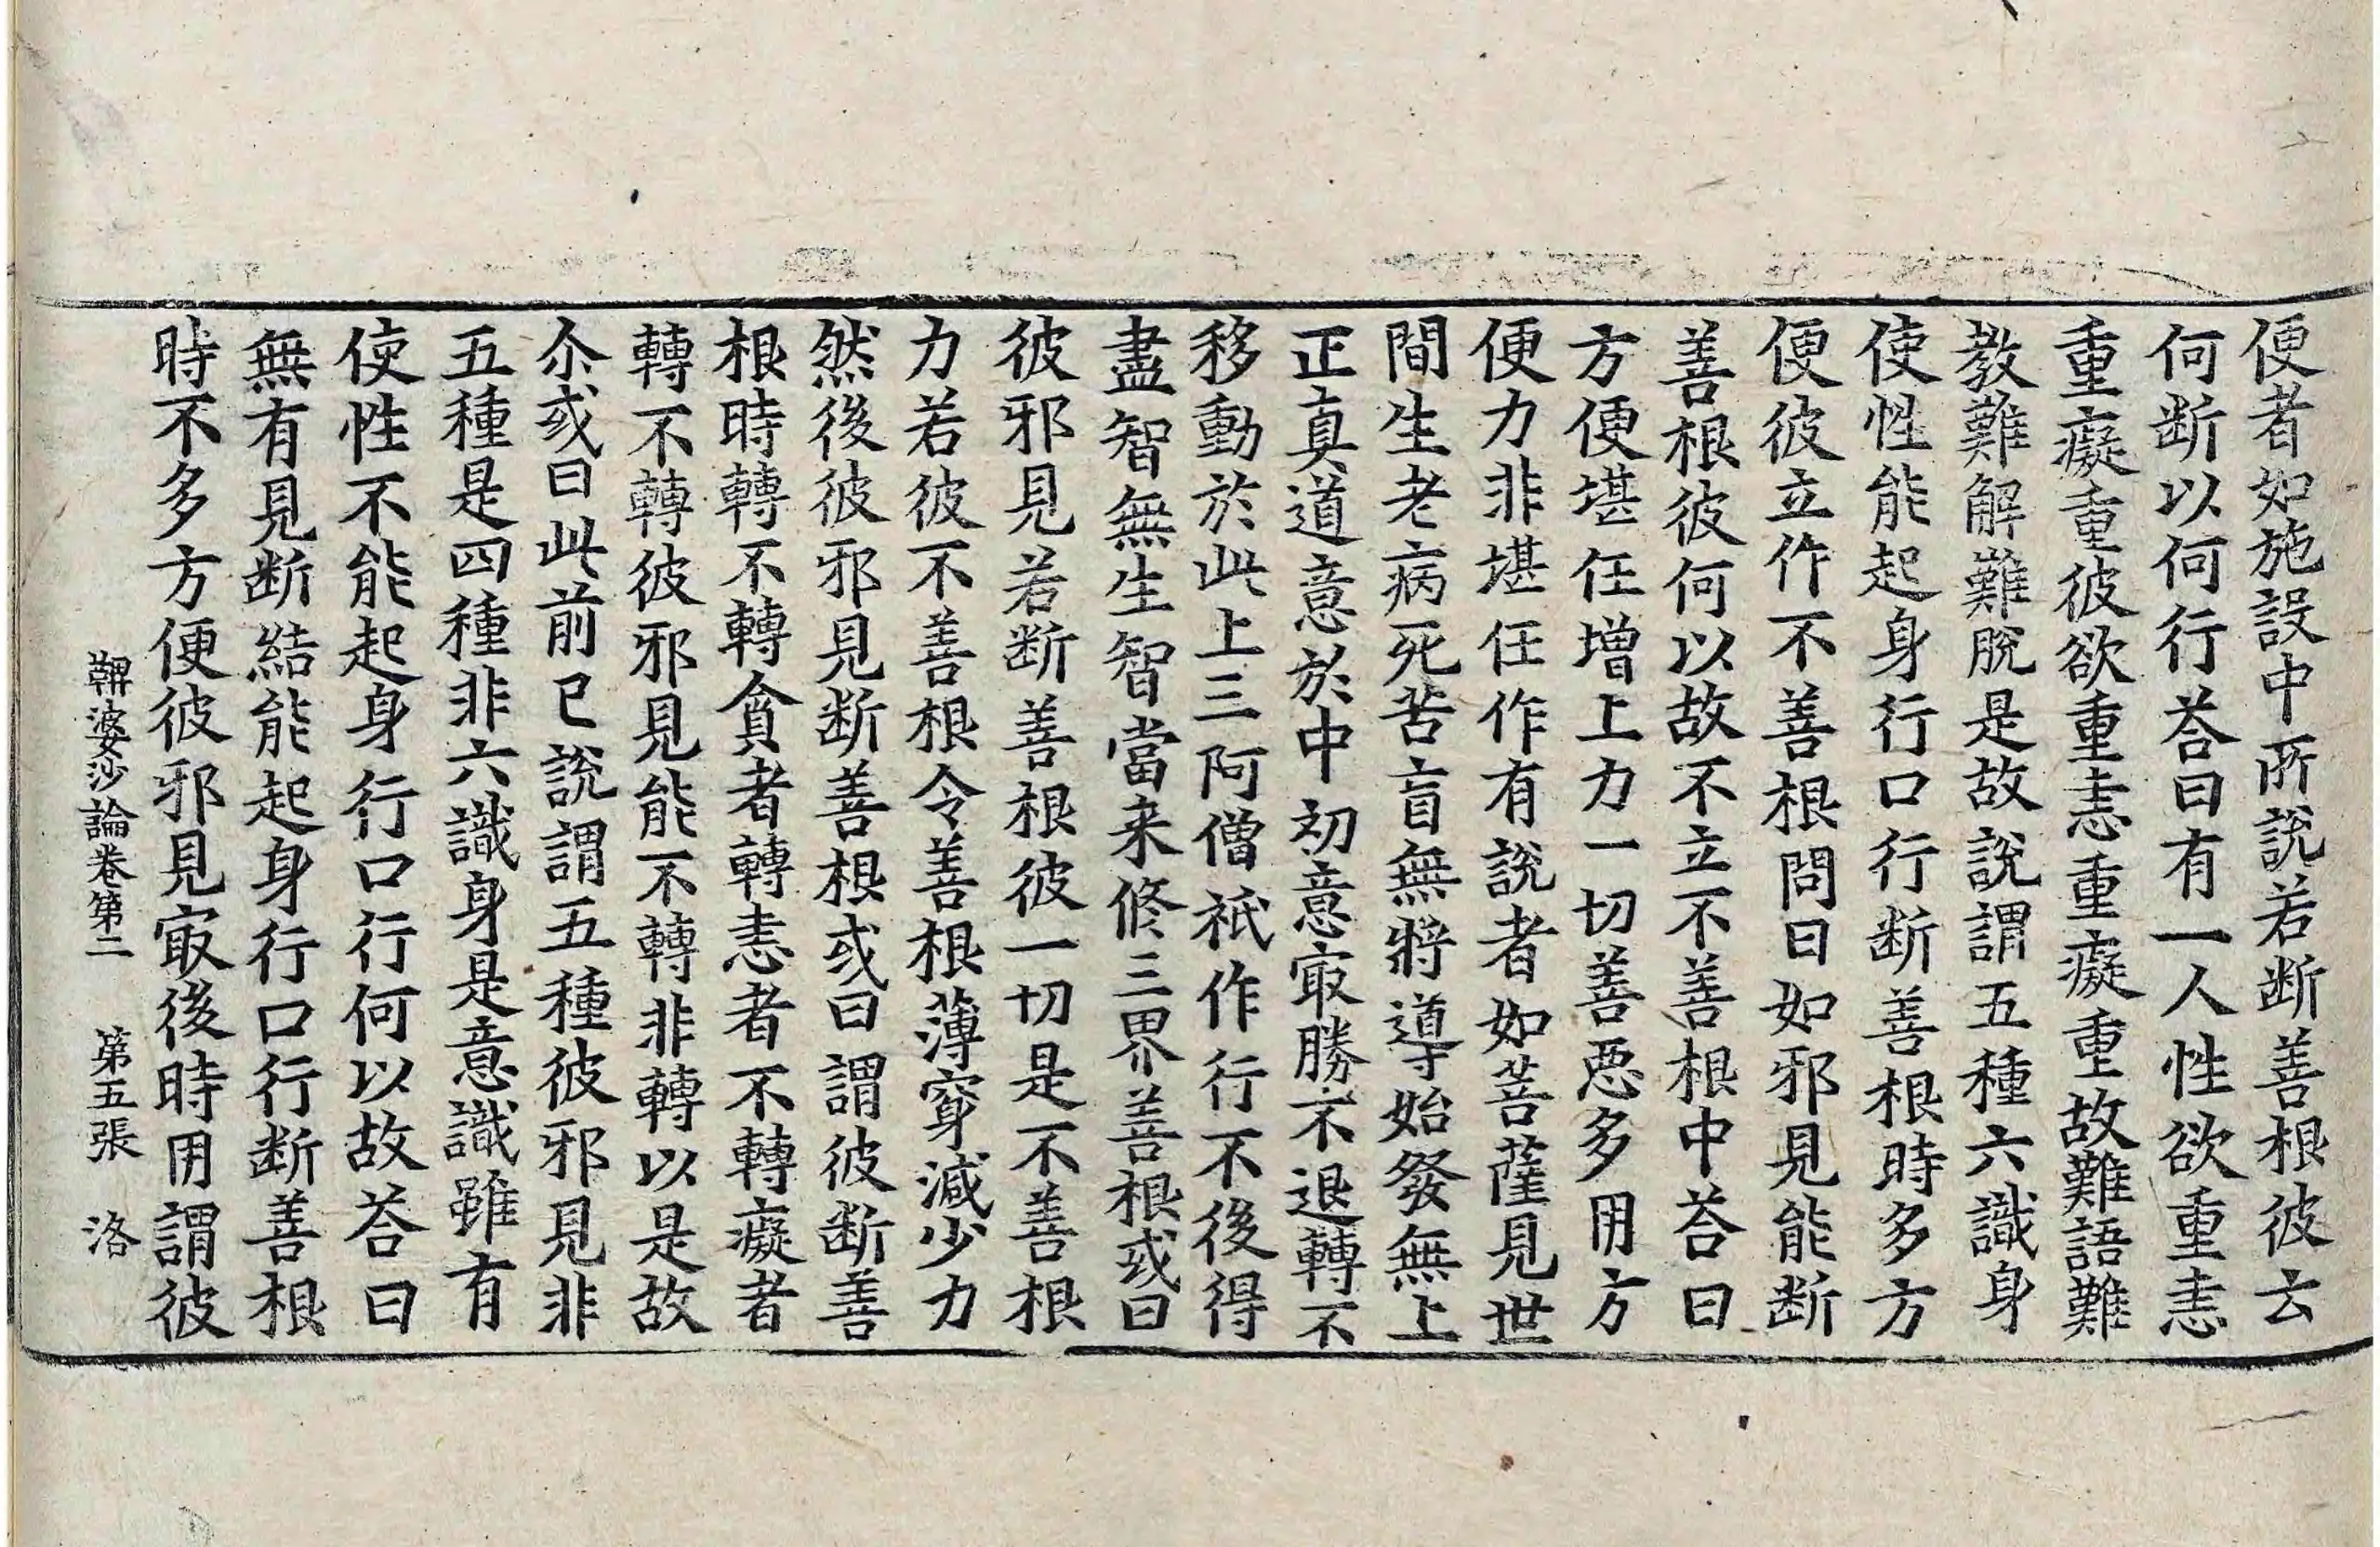 便者如施設中所說若断善根彼云
何断以何行荅曰有一人性欲重恚
重癡重彼欲重恚重癡重故難語難
教難解難脫是故說謂五種六識身
使性能起身行口行断善根時多方
便彼立作不善根問曰如邪見能断
善根彼何以故不立不善根中荅曰
方便堪任增上力一切善惡多用方
便力非堪任作有說者如菩薩見世
間生老病死苦盲無將導始發無上
正真道意於中初意㝡勝不退轉不
移動於此上三阿僧祇作行不後得
盡智無生智當来修三界善根或曰
彼邪見若断善根彼一切是不善根
力若彼不善根令善根薄窮減少力
然後彼邪見断善根或曰謂彼断善
根時轉不轉貪者轉恚者不轉癡者
轉不轉彼邪見能不轉非轉以是故
尒或曰此前已說謂五種彼邪見非
五種是四種非六識身是意識雖有
使性不能起身行口行何以故荅曰
無有見断結能起身行口行断善根
時不多方便彼邪見㝡後時用謂彼
鞞婆沙論卷第二　第五張　洛